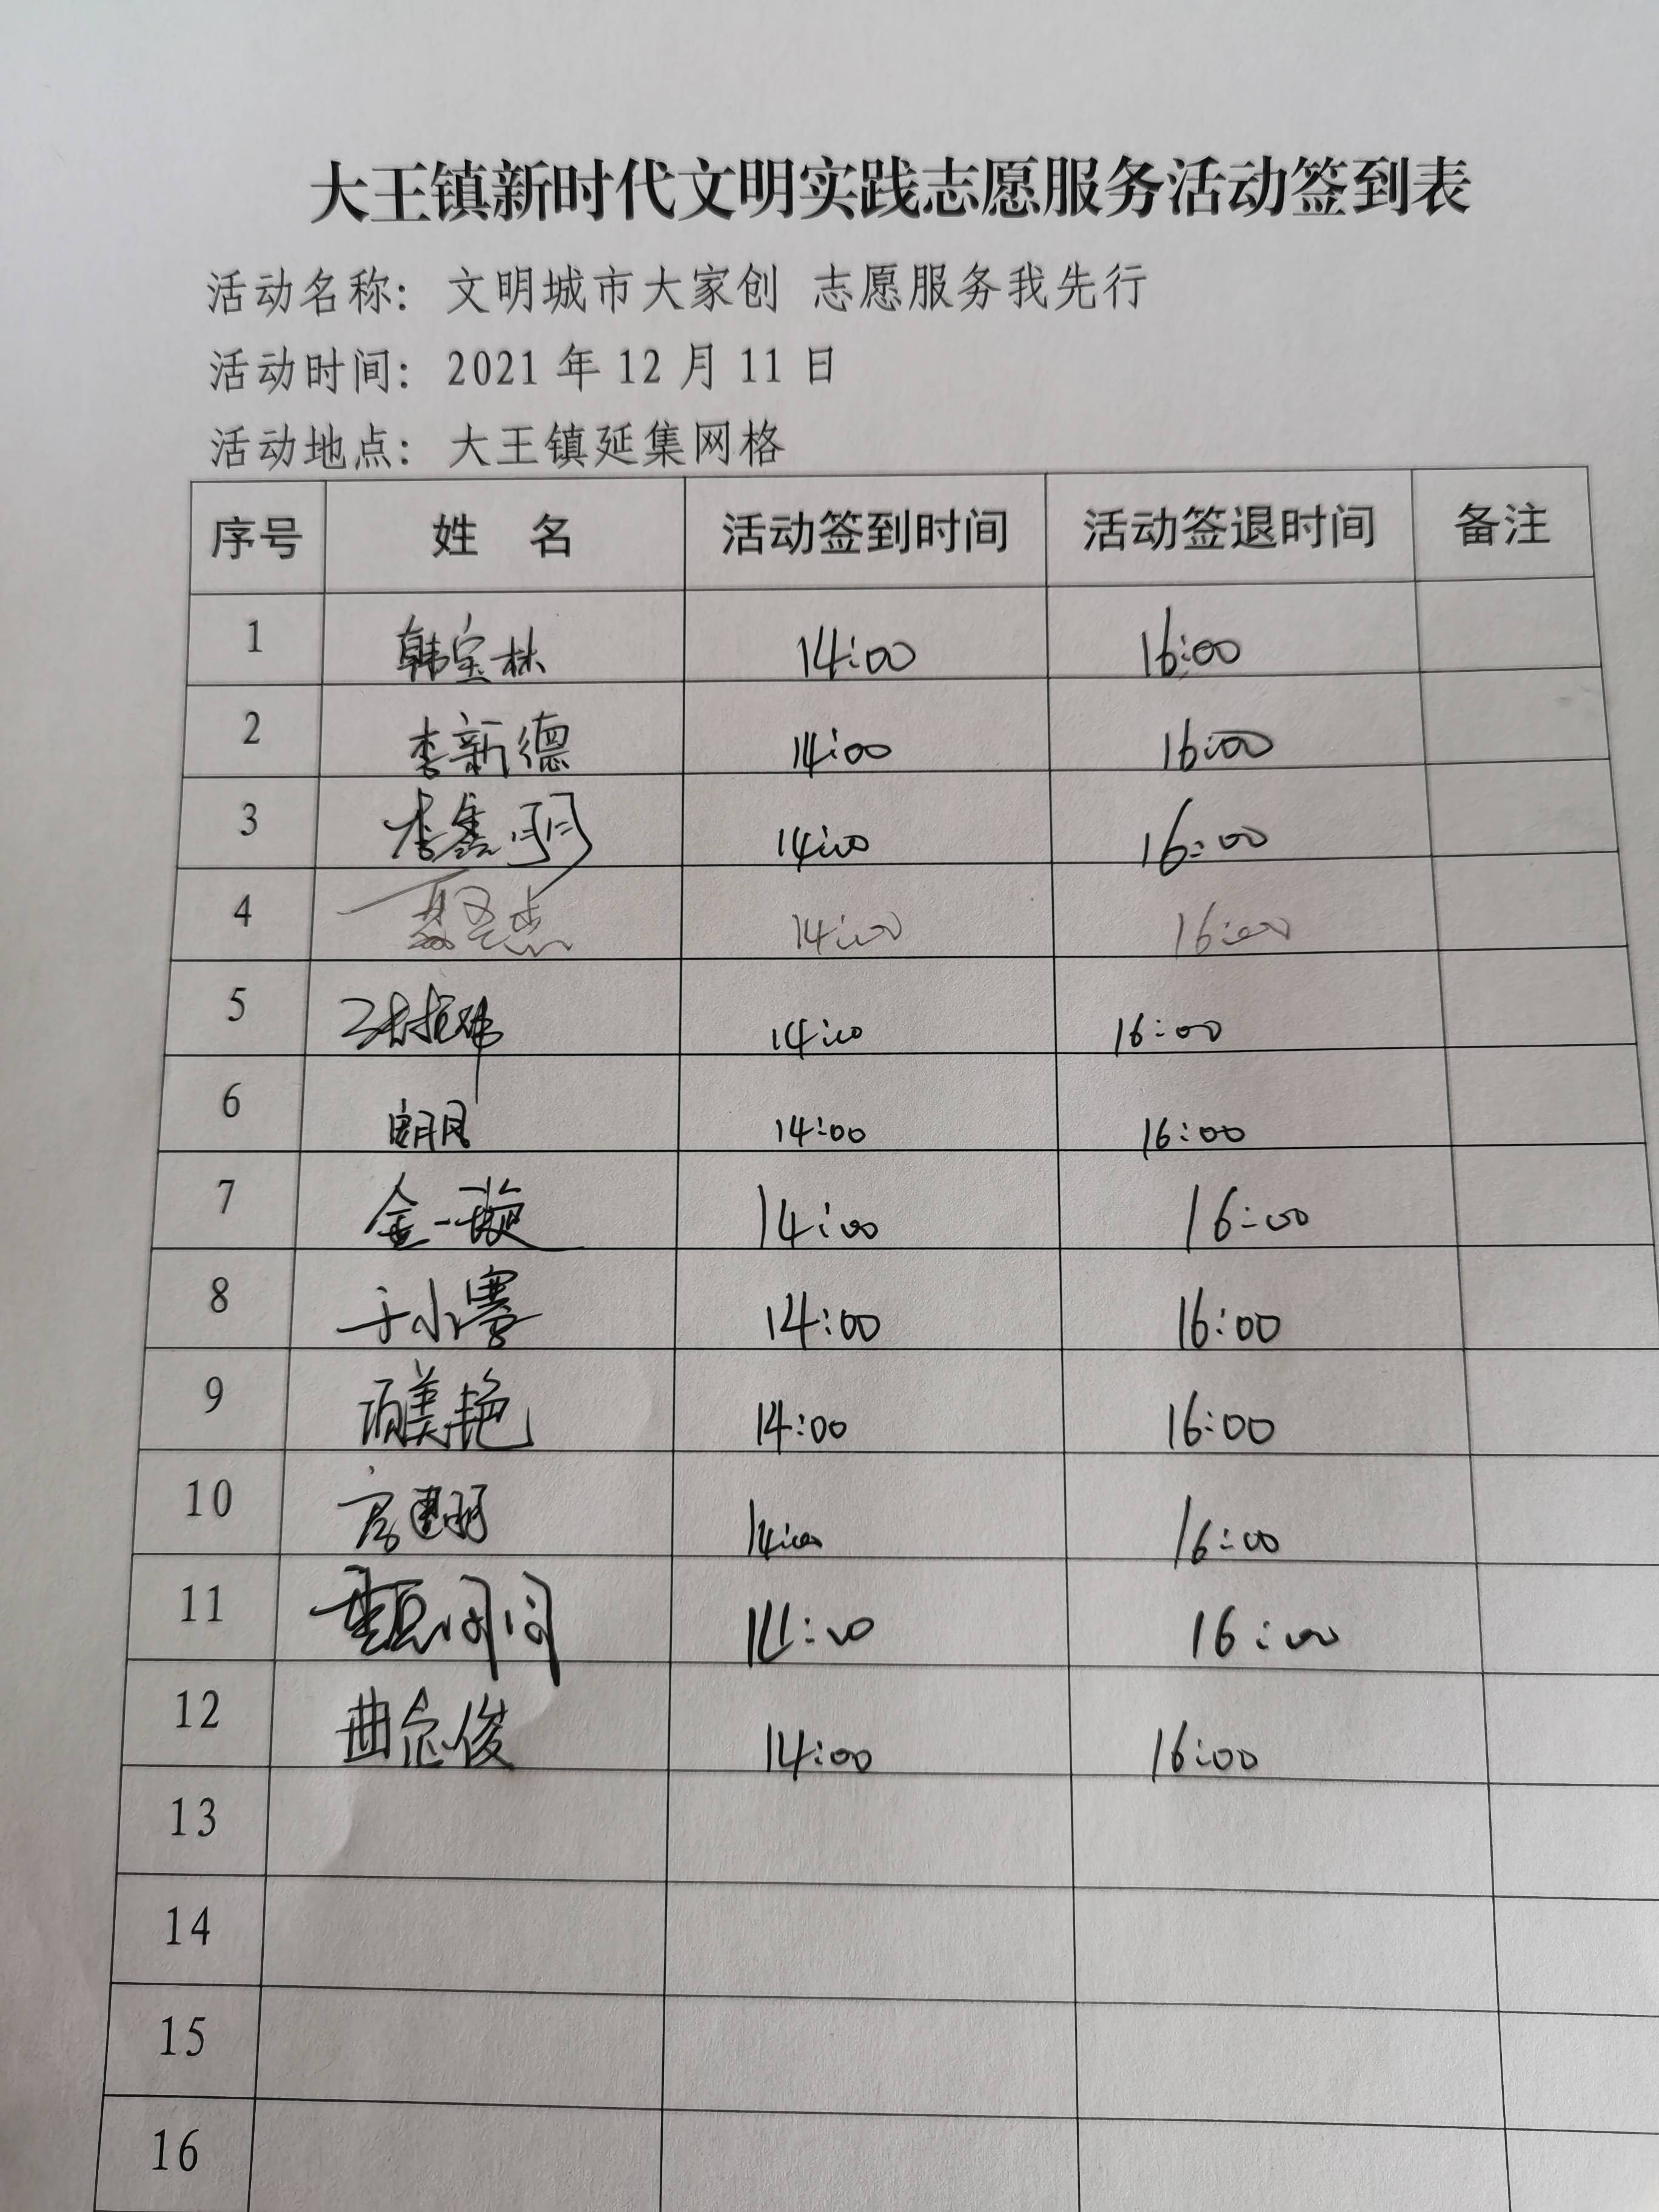 大王镇新时代文明实践志愿服务活动签到表
活动名称: 文明城市大家创 志愿服务我先行
活动时间: 2021年12月11日
活动地点: 大王镇延集网格
序号 姓 名 活动签到时间 活动签退时间 备注
1 韩宝林 14:00 16:00
2 李新德 14:00 16:00
3 李鑫明 14:00 16:00
4 14:00 16:00
5 14:00 16:00
6 14:00 16:00
7 金一璇 14:00 16:00
8 于小骞 14:00 16:00
9 美艳 14:00 16:00
10 14:00 16:00
11 14:00 16:00
12 曲念俊 14:00 16:00
13
14
15
16